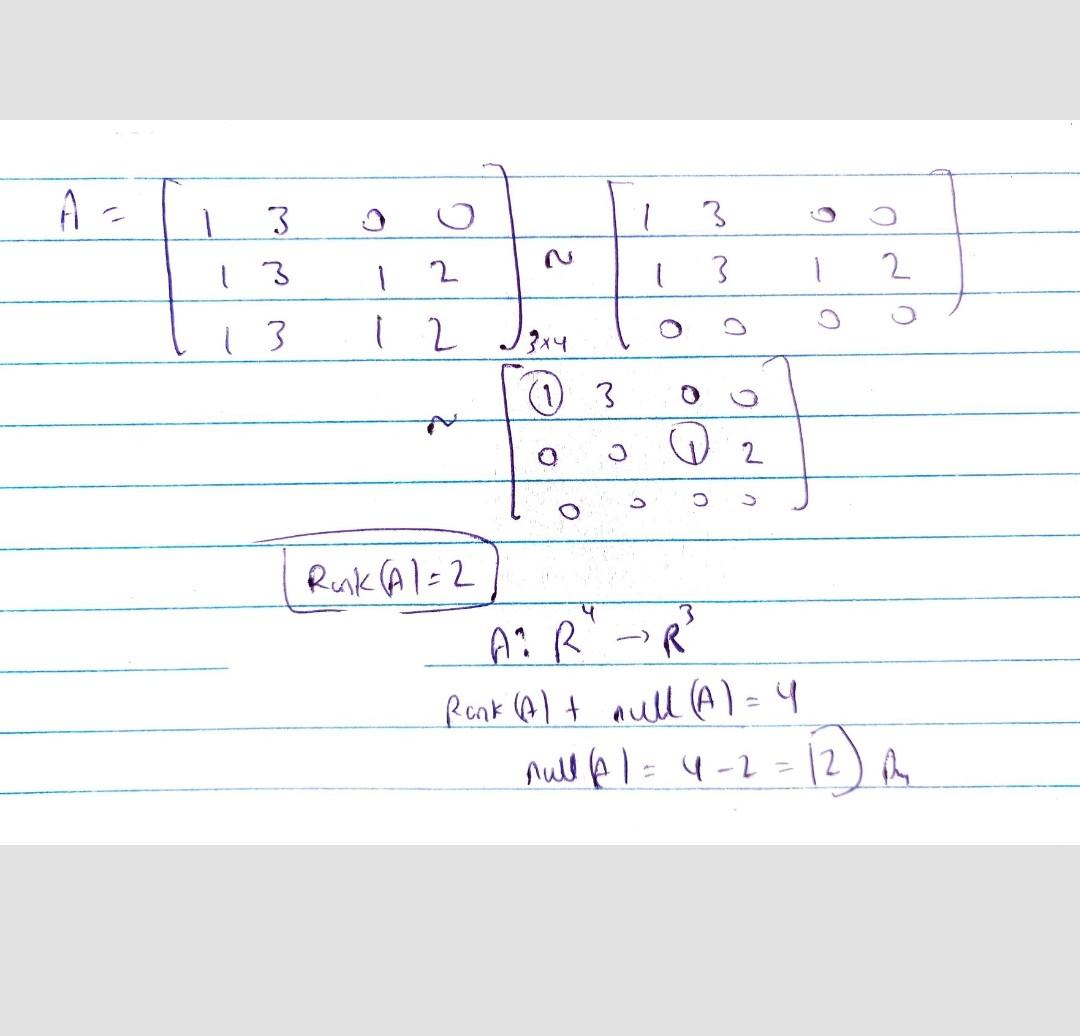 A = [ 1 3 0 0 ] [ 1 3 0 0 ]
1 3 1 2 ~ 1 3 1 2
1 3 1 2 ]3x4 0 0 0 0
[ 1 3 0 0 ]
~ 0 0 1 2
0 0 0 0
Rank(A) = 2
A: R⁴ → R³
Rank(A) + null(A) = 4
null(A) = 4 - 2 = 2